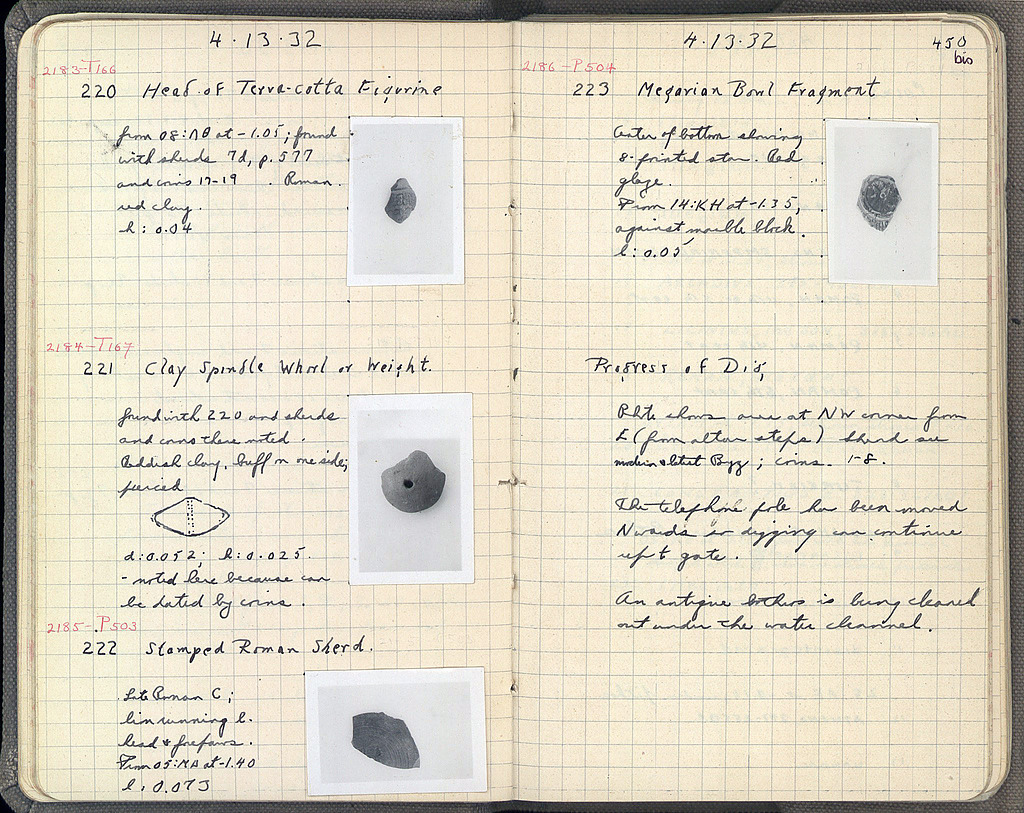 4·13·32
2183-T166
220 Head of Terra-cotta Figurine
from 08:ΛΘ at -1.05; found
with sherds 7d, p. 577
and coins 17-19. Roman.
red clay.
h: 0.04
2184-T167
221 Clay Spindle Whorl or Weight.
found with 220 and sherds
and coins there noted.
Reddish clay, buff on one side;
pierced
d: 0.052; h: 0.025.
- noted here because can
be dated by coins.
2185-P503
222 Stamped Roman Sherd.
Late Roman C;
lion running l.
head & forepaws.
From 05:MΛ at -1.40
l: 0.073
4·13·32
450
bis
2186-P504
223 Megarian Bowl Fragment
Center of bottom showing
8-pointed star. Red
glaze.
From 14:KH at -1.35,
against marble block.
l: 0.05
Progress of Dig,
Photo shows area at NW corner from
E (from altar steps) Sherds are
modern & latest Byz; coins. 1-8.
The telephone pole has been moved
Nwards so digging can continue
up to gate.
An antique bothros is being cleaned
out under the water channel.